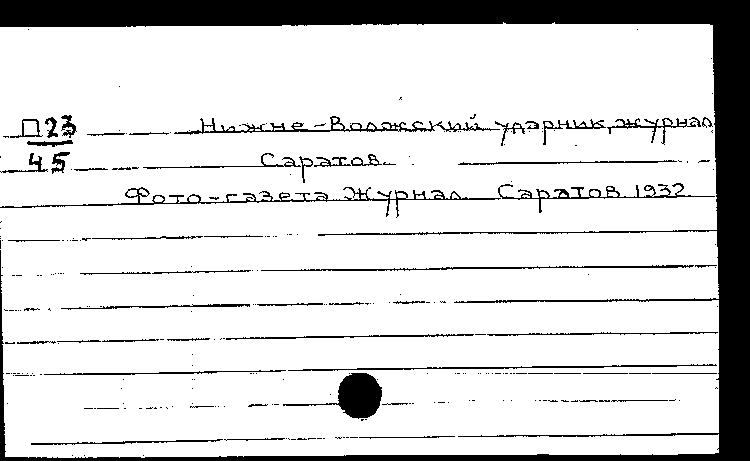 П23 Нижне-Волжский ударник, журнал
45 Саратов.
Фото-газета Журнал. Саратов 1932